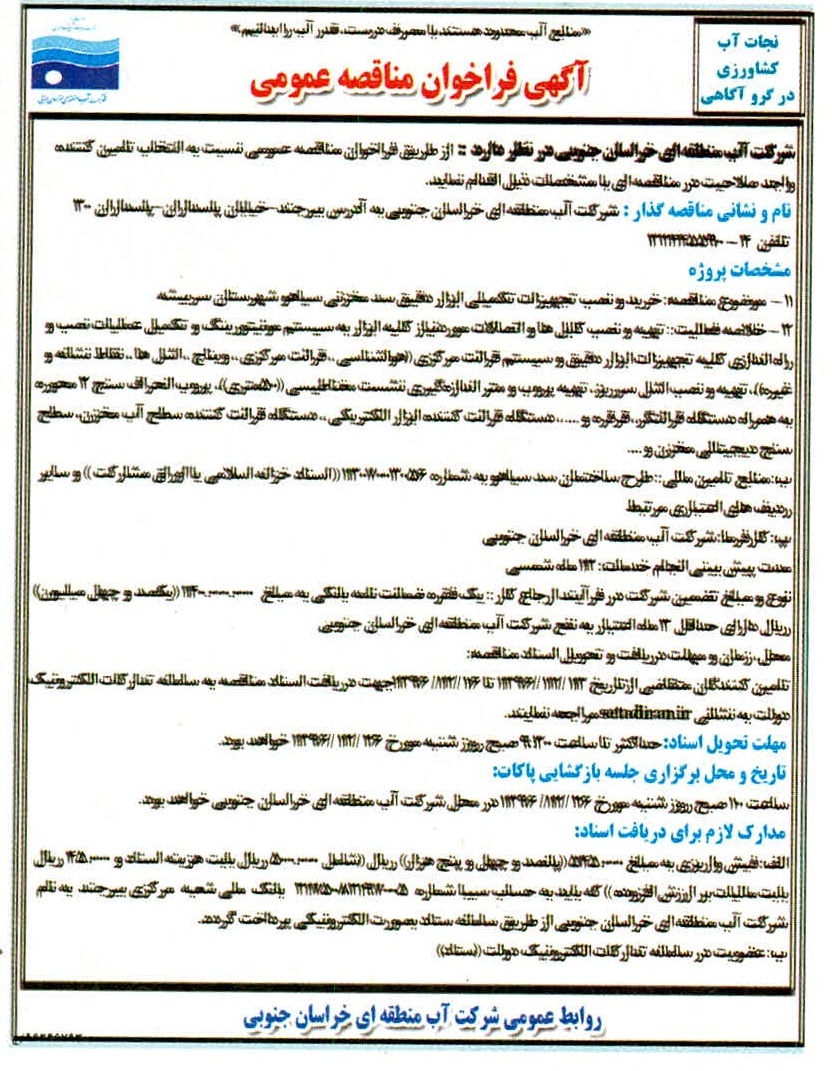 «منابع آب محدود هستند با مصرف درست، قدر آب را بدانیم»
نجات آب
کشاورزی
در گرو آگاهی
آگهی فراخوان مناقصه عمومی
شرکت آب منطقه ای خراسان جنوبی در نظر دارد : از طریق فراخوان مناقصه عمومی نسبت به انتخاب تامین کننده
واجد صلاحیت در مناقصه ای با مشخصات ذیل اقدام نماید.
نام و نشانی مناقصه گذار : شرکت آب منطقه ای خراسان جنوبی به آدرس بیرجند-خیابان پاسداران-پاسداران
تلفن
مشخصات پروژه
۱- موضوع مناقصه: خرید و نصب تجهیزات تکمیلی ابزار دقیق سد مخزنی سیاهو شهرستان سربیشه
۲- خلاصه فعالیت: تهیه و نصب کابل ها و اتصالات مورد نیاز کلیه ابزار به سیستم مونیتورینگ و تکمیل عملیات نصب و
راه اندازی کلیه تجهیزات ابزار دقیق و سیستم قرائت مرکزی (هواشناسی، قرائت مرکزی، ویناچ، اشل ها، نقاط نشانه و
غیره)، تهیه و نصب اشل سرریز، تهیه پروب و متر اندازه گیری نشست مغناطیسی پروب انحراف سنج ۲ محوره
به همراه دستگاه قرائتگر، قرقره و ....، دستگاه قرائت کننده ابزار الکتریکی، دستگاه قرائت کننده سطح آب مخزن، سطح
سنج دیجیتالی مخزن و ...
ب: منابع تامین مالی: طرح ساختمان سد سیاهو به شماره (اسناد خزانه اسلامی یا اوراق مشارکت) و سایر
ردیف های اعتباری مرتبط
پ: کارفرما: شرکت آب منطقه ای خراسان جنوبی
مدت پیش بینی انجام خدمات: ماه شمسی
نوع و مبلغ تضمین شرکت در فرآیند ارجاع کار : یک فقره ضمانت نامه بانکی به مبلغ (یکصد و چهل میلیون)
ریال دارای حداقل ۳ ماه اعتبار به نفع شرکت آب منطقه ای خراسان جنوبی
محل، زمان و مهلت دریافت و تحویل اسناد مناقصه:
تامین کنندگان متقاضی از تاریخ تا جهت دریافت اسناد مناقصه به سامانه تدارکات الکترونیک
دولت به نشانی setadiran.ir مراجعه نمایند.
مهلت تحویل اسناد: حداکثر تا ساعت صبح روز شنبه مورخ خواهد بود.
تاریخ و محل برگزاری جلسه بازگشایی پاکات:
ساعت ۱۰ صبح روز شنبه مورخ در محل شرکت آب منطقه ای خراسان جنوبی خواهد بود.
مدارک لازم برای دریافت اسناد:
الف: فیش واریزی به مبلغ (پانصد و چهل و پنج هزار) ریال (شامل ریال بابت هزینه اسناد و ریال
بابت مالیات بر ارزش افزوده) که باید به حساب سیبا شماره بانک ملی شعبه مرکزی بیرجند به نام
شرکت آب منطقه ای خراسان جنوبی از طریق سامانه ستاد بصورت الکترونیکی پرداخت گردد.
ب: عضویت در سامانه تدارکات الکترونیک دولت (ستاد)
روابط عمومی شرکت آب منطقه ای خراسان جنوبی